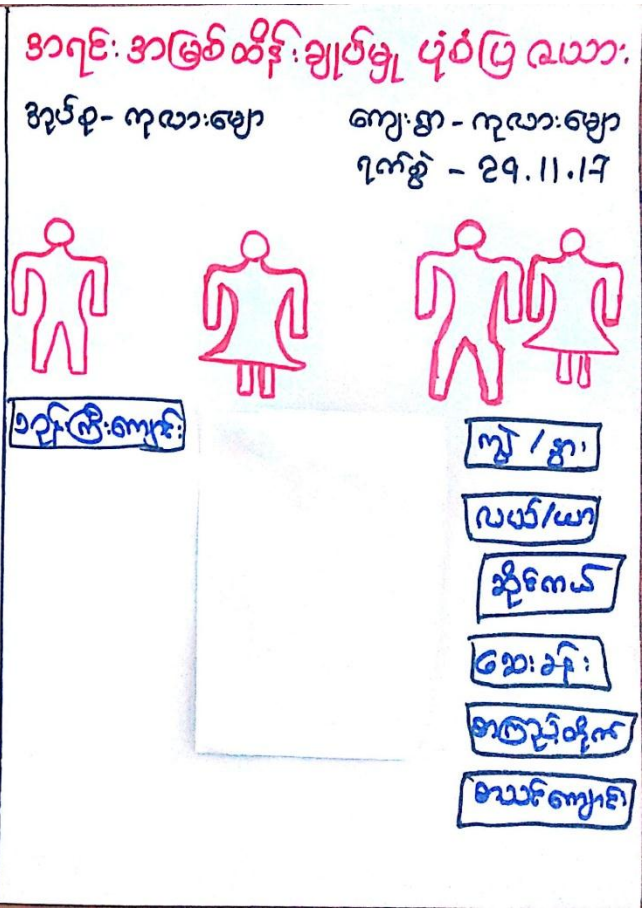 အရင်းအမြစ်ထိန်းချုပ်မှု ပုံစံပြ ဇယား
အုပ်စု - ကုလားမျော ကျေးရွာ - ကုလားမျော
ရက်စွဲ - 29.11.17
ဘုန်းကြီးကျောင်း
ကျွဲ / နွား
လယ်/ယာ
ဆိုင်ကယ်
ဆေးခန်း
စာကြည့်တိုက်
စာသင်ကျောင်း